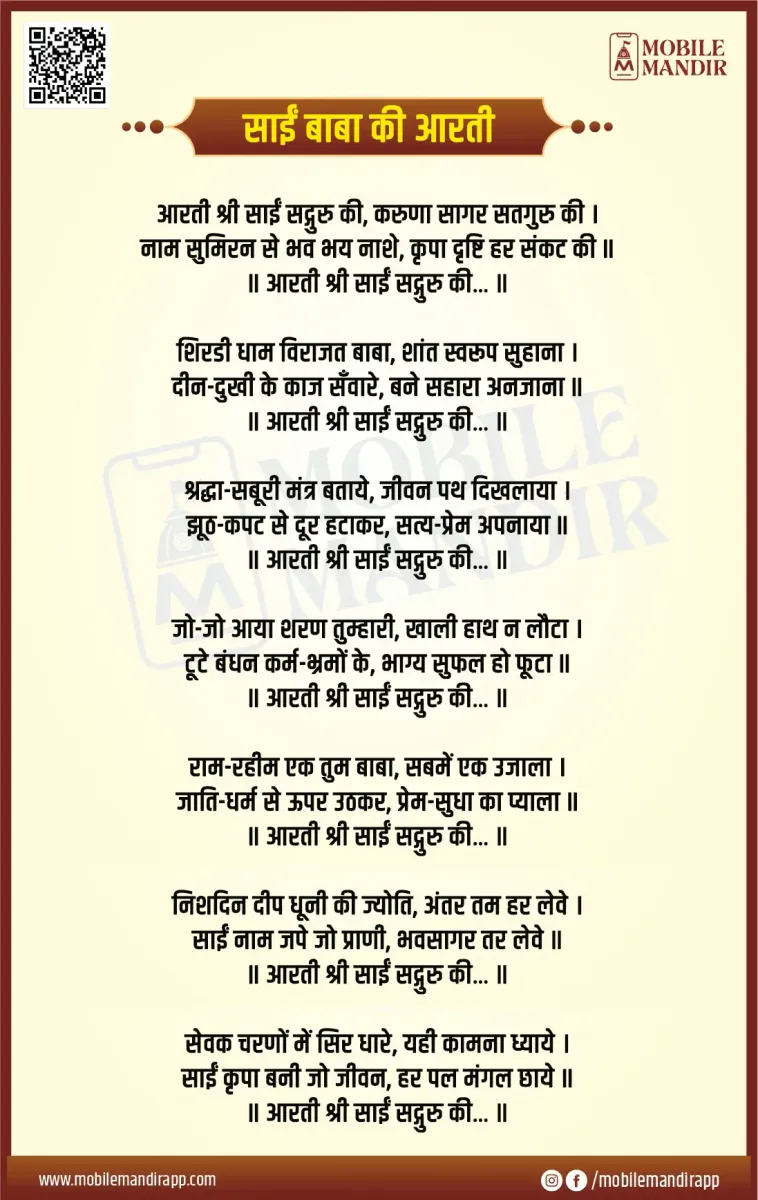 MOBILE
MANDIR
साईं बाबा की आरती
आरती श्री साईं सद्गुरु की, करुणा सागर सतगुरु की ।
नाम सुमिरन से भव भय नाशे, कृपा दृष्टि हर संकट की ॥
॥ आरती श्री साईं सद्गुरु की... ॥
शिरडी धाम विराजत बाबा, शांत स्वरूप सुहाना ।
दीन-दुखी के काज सँवारे, बने सहारा अनजाना ॥
॥ आरती श्री साईं सद्गुरु की... ॥
श्रद्धा-सबूरी मंत्र बताये, जीवन पथ दिखलाया ।
झूठ-कपट से दूर हटाकर, सत्य-प्रेम अपनाया ॥
॥ आरती श्री साईं सद्गुरु की... ॥
जो-जो आया शरण तुम्हारी, खाली हाथ न लौटा ।
टूटे बंधन कर्म-भ्रमों के, भाग्य सुफल हो फूटा ॥
॥ आरती श्री साईं सद्गुरु की... ॥
राम-रहीम एक तुम बाबा, सबमें एक उजाला ।
जाति-धर्म से ऊपर उठकर, प्रेम-सुधा का प्याला ॥
॥ आरती श्री साईं सद्गुरु की... ॥
निशदिन दीप धूनी की ज्योति, अंतर तम हर लेवे ।
साईं नाम जपे जो प्राणी, भवसागर तर लेवे ॥
॥ आरती श्री साईं सद्गुरु की... ॥
सेवक चरणों में सिर धारे, यही कामना ध्याये ।
साईं कृपा बनी जो जीवन, हर पल मंगल छाये ॥
॥ आरती श्री साईं सद्गुरु की... ॥
MOBILE
MANDIR
www.mobilemandirapp.com
/mobilemandirapp